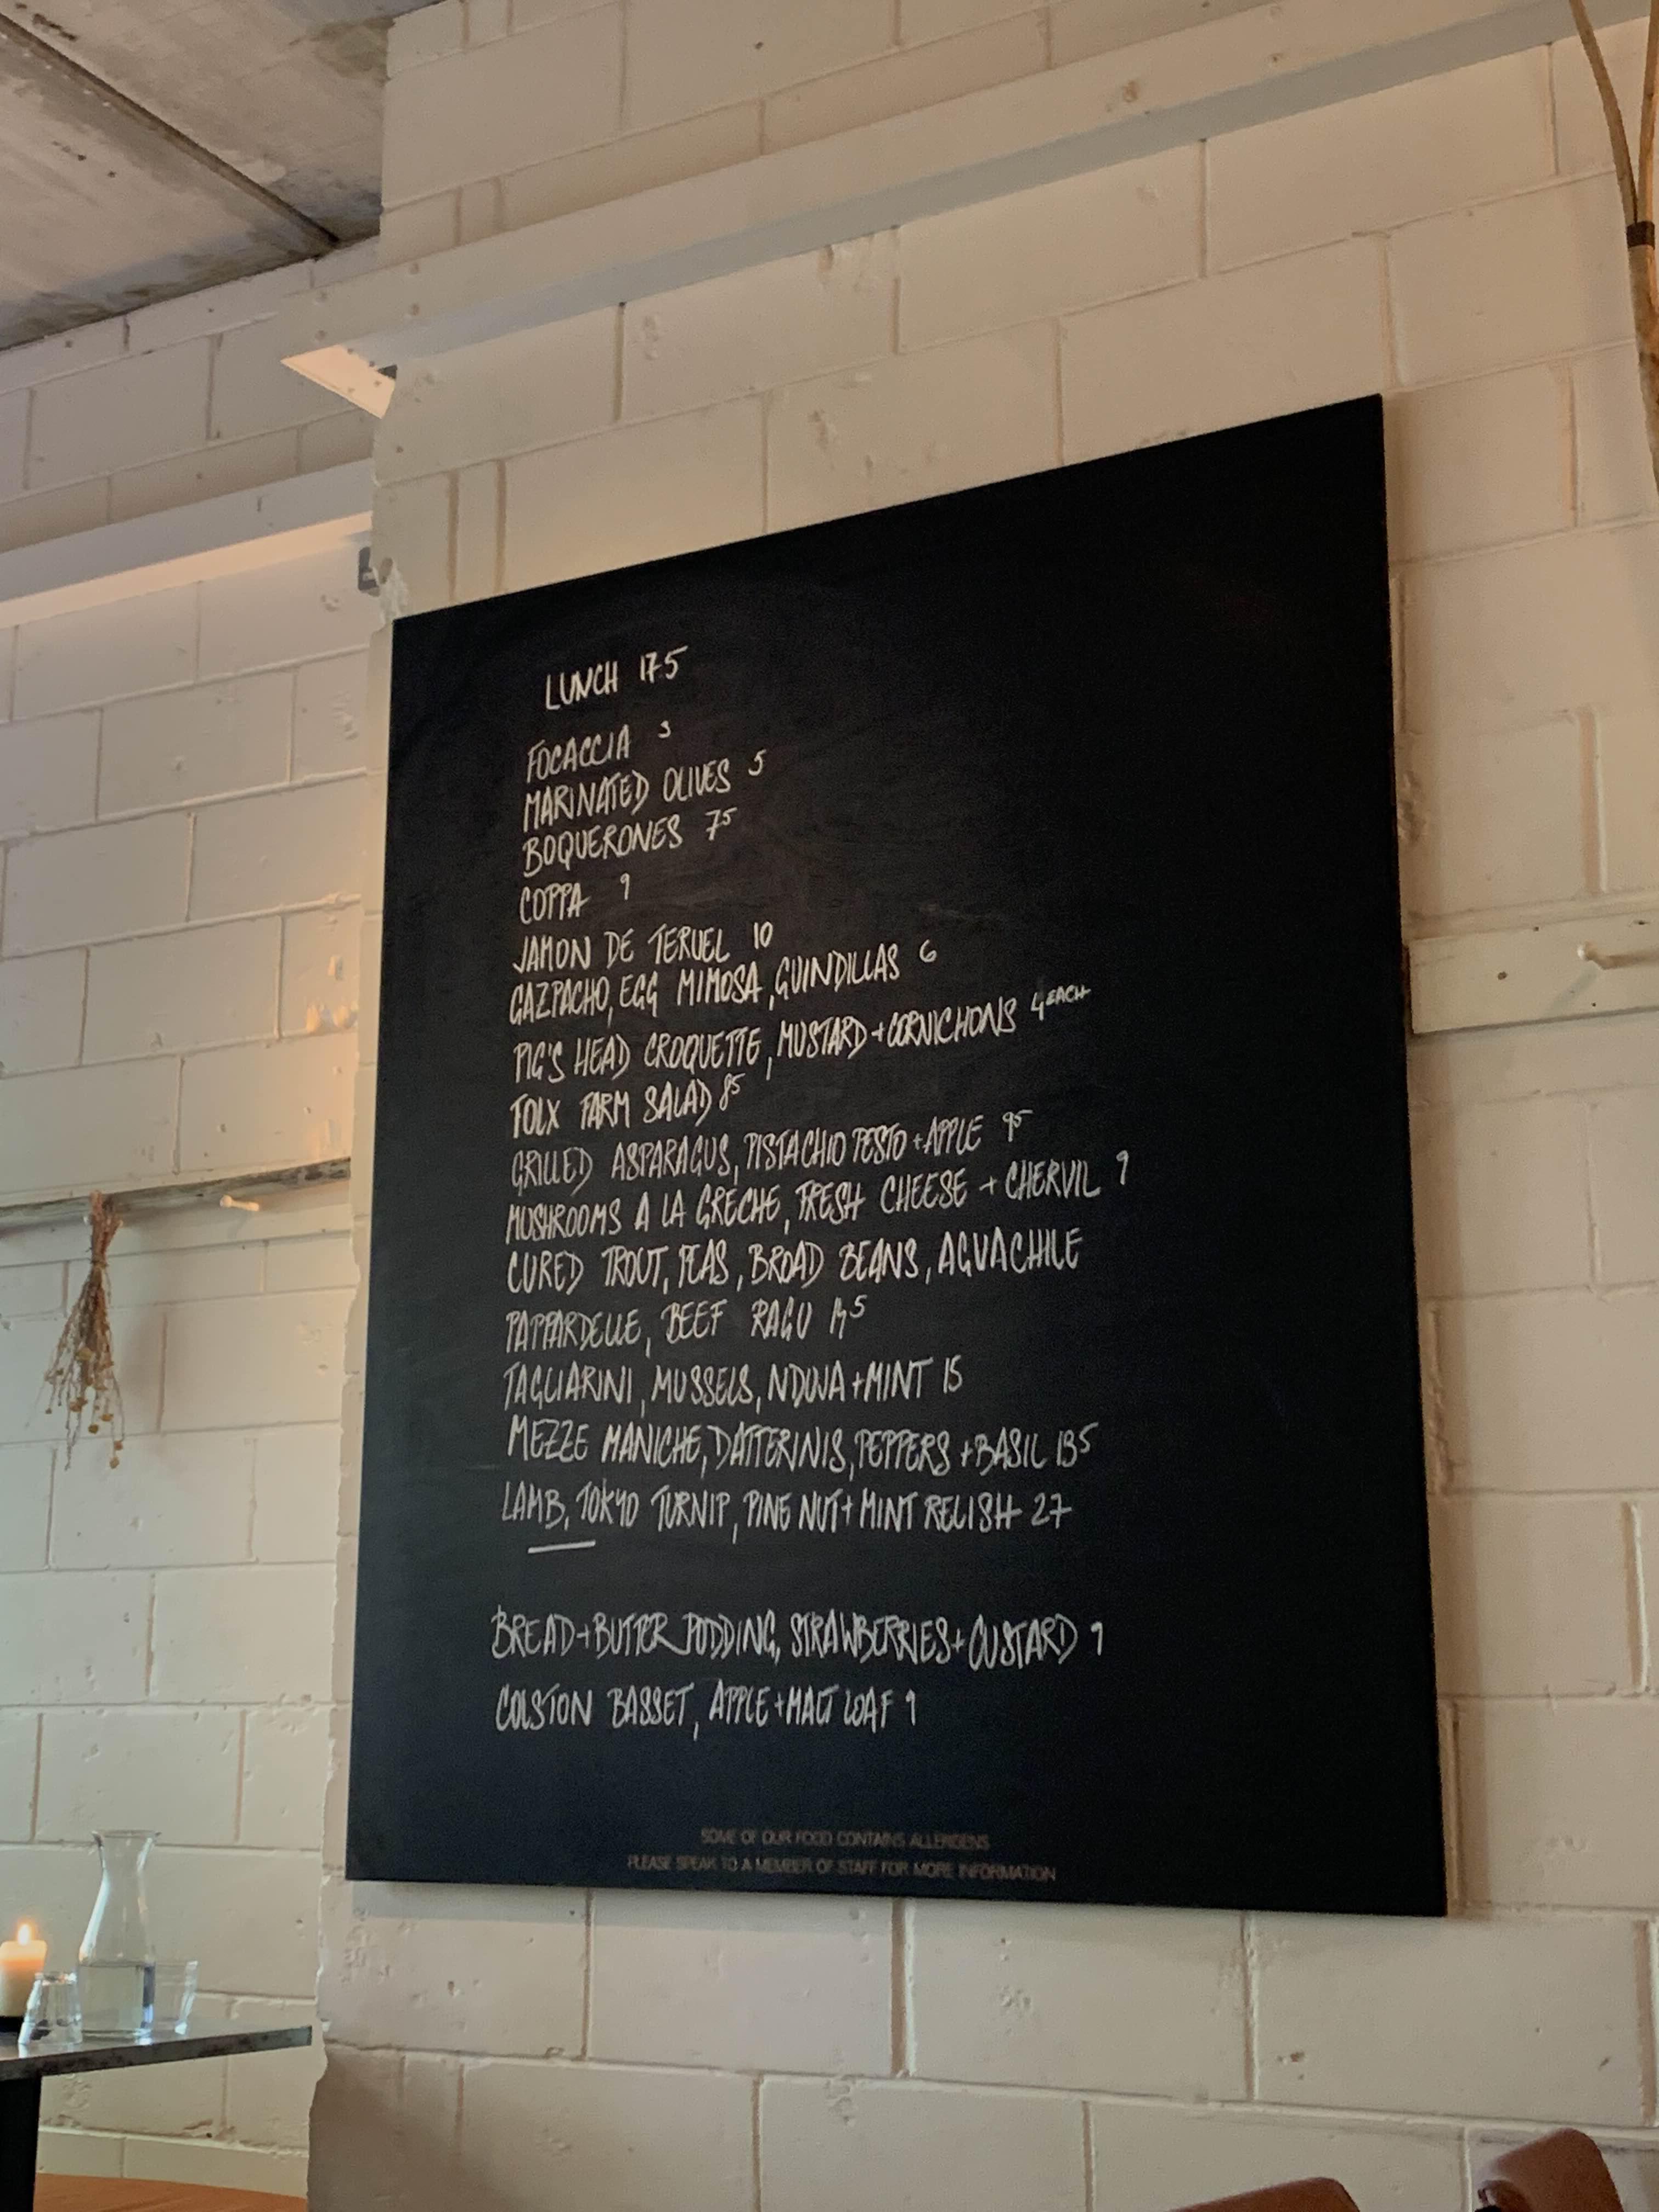 LUNCH 17.5
FOCACCIA 3
MARINATED OLIVES 5
BOQUERONES 75
COPPA 9
JAMON DE TERUEL 10
GAZPACHO, EGG MIMOSA, GUINDILLAS 6
PIG'S HEAD CROQUETTE, MUSTARD + CORNICHONS 4 EACH
FOLX FARM SALAD 85
GRILLED ASPARAGUS, PISTACHIO PESTO + APPLE 95
MUSHROOMS A LA GRECHE, FRESH CHEESE + CHERVIL 9
CURED TROUT, PEAS, BROAD BEANS, AGUACHILE
PAPPARDELLE, BEEF RAGU
TAGLIARINI, MUSSELS, NDUJA + MINT 15
MEZZE MANICHE, DATTERINIS, PEPPERS + BASIL 135
LAMB, TOKYO TURNIP, PINE NUT + MINT RELISH 27
BREAD + BUTTER PUDDING, STRAWBERRIES + CUSTARD 9
COLSTON BASSET, APPLE + MALT LOAF 9
SOME OF OUR FOOD CONTAINS ALLERGENS
PLEASE SPEAK TO A MEMBER OF STAFF FOR MORE INFORMATION